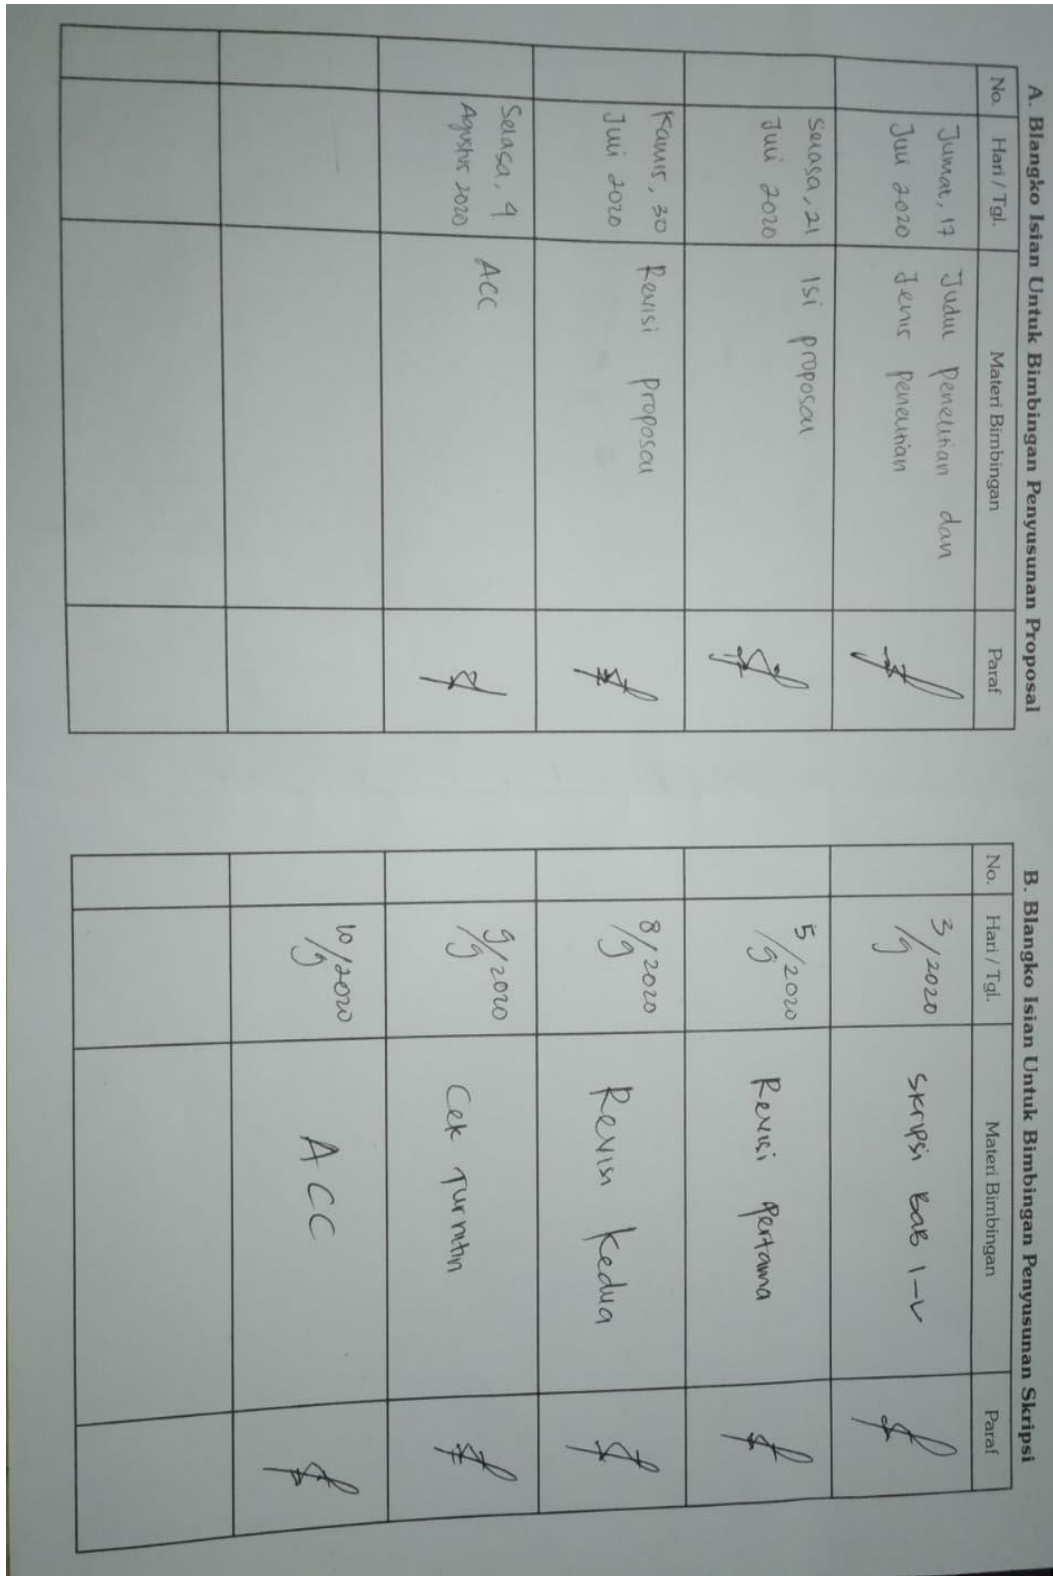 A. Blangko Isian Untuk Bimbingan Penyusunan Proposal
No. Hari / Tgl. Materi Bimbingan Paraf
Jumat, 17 Judul penelitian dan
Juli 2020 Jenis penelitian
Selasa, 21 Isi proposal
Juli 2020
Kamis, 30 Revisi proposal
Juli 2020
Selasa, 4 ACC
Agustus 2020
B. Blangko Isian Untuk Bimbingan Penyusunan Skripsi
No. Hari / Tgl. Materi Bimbingan Paraf
3/9 2020 Skripsi Bab I-V
5/9 2020 Revisi pertama
8/9 2020 Revisi kedua
9/9 2020 Cek Turnitin
10/9 2020 ACC